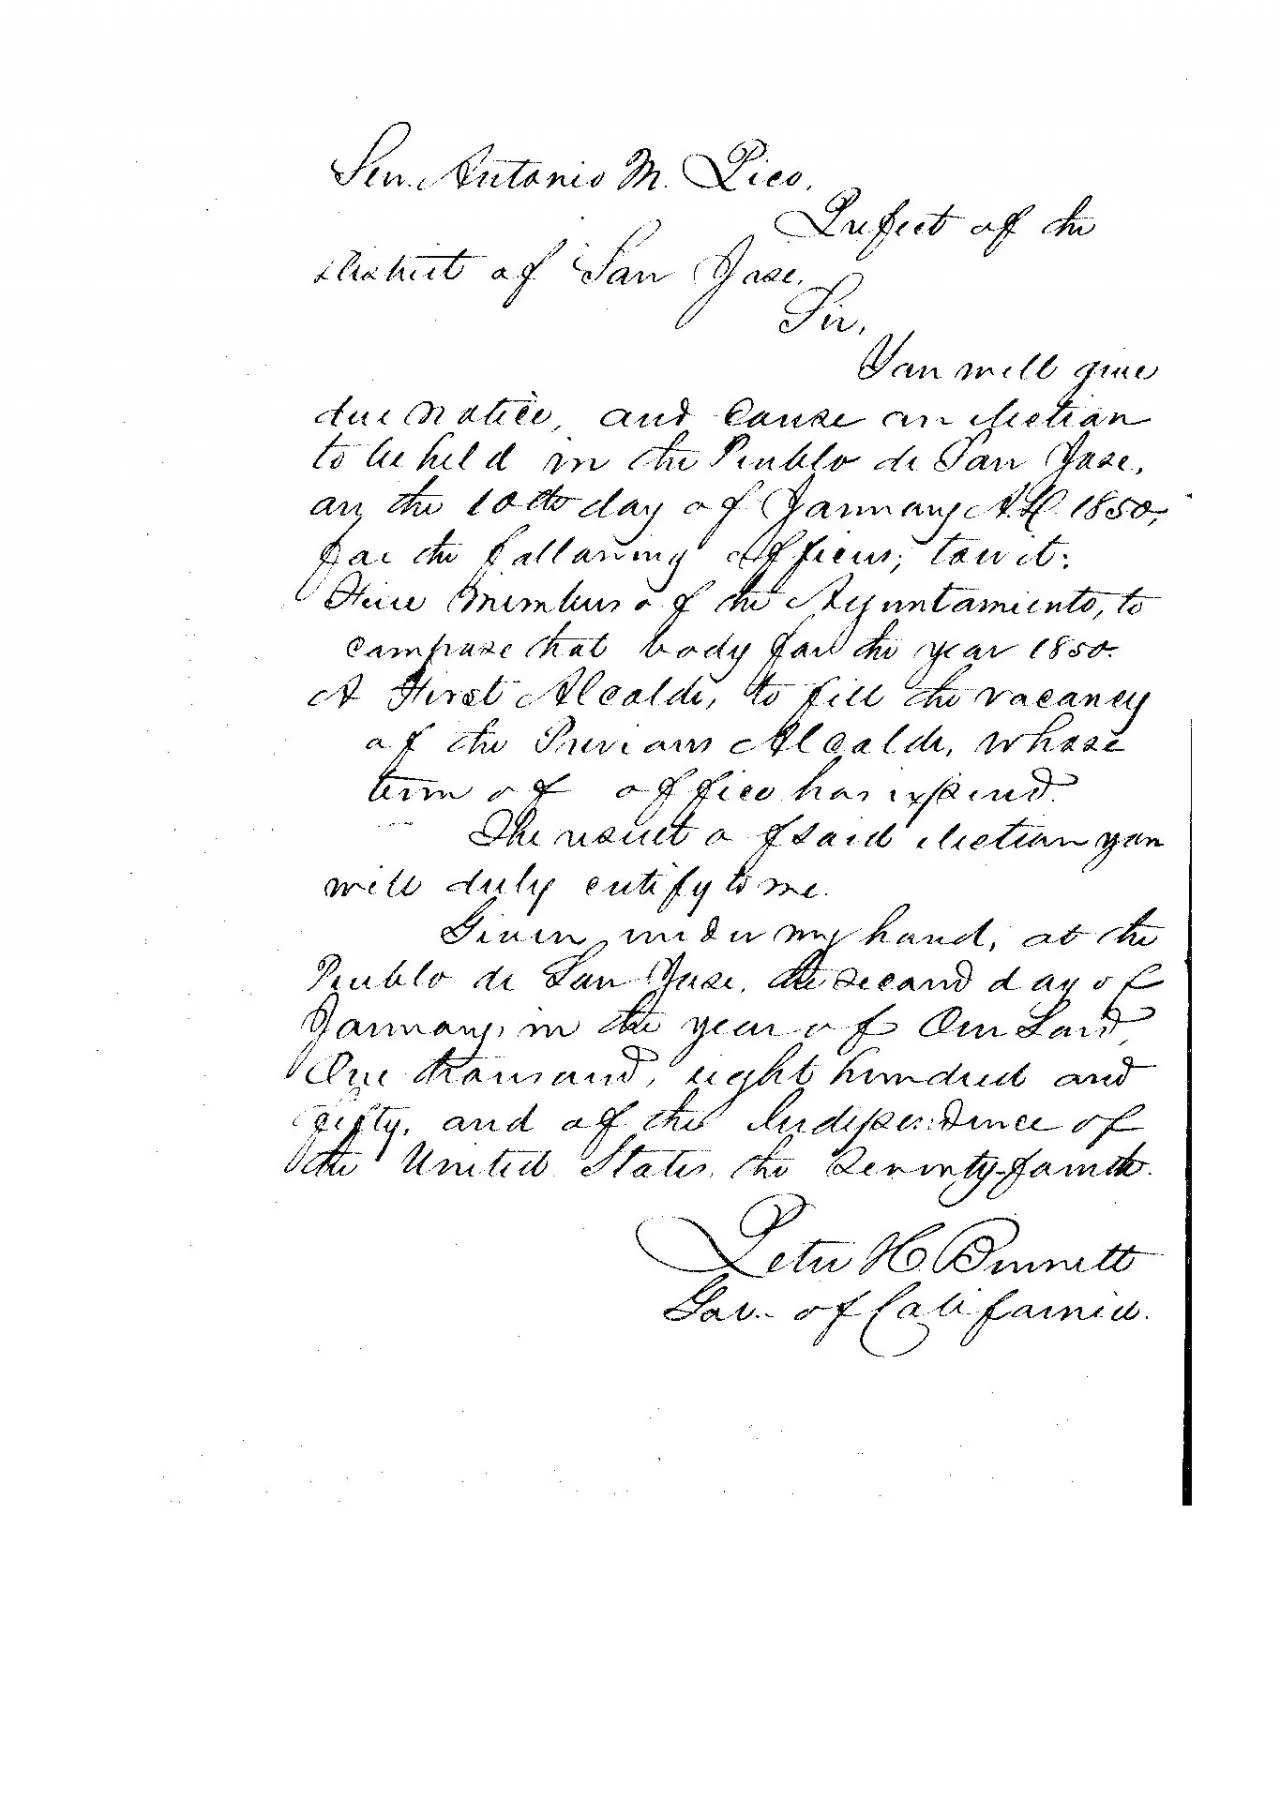 Sen. Antonio M. Pico,
Prefect of the
district of San Jose,
Sir,
You will give
due notice, and cause an election
to be held in the Pueblo de San Jose,
on the 10th day of January A.D. 1850,
for the following officers, towit:
Five Members of the Ayuntamiento, to
compose that body for the year 1850.
A First Alcalde, to fill the vacancy
of the Previous Alcalde, whose
term of office has expired.
The result of said election you
will duly certify to me.
Given under my hand, at the
Pueblo de San Jose, the second day of
January, in the year of Our Lord,
One thousand, eight hundred and
fifty, and of the Independence of
the United States, the Seventy-fourth.
Peter H. Burnett
Gov. of California.